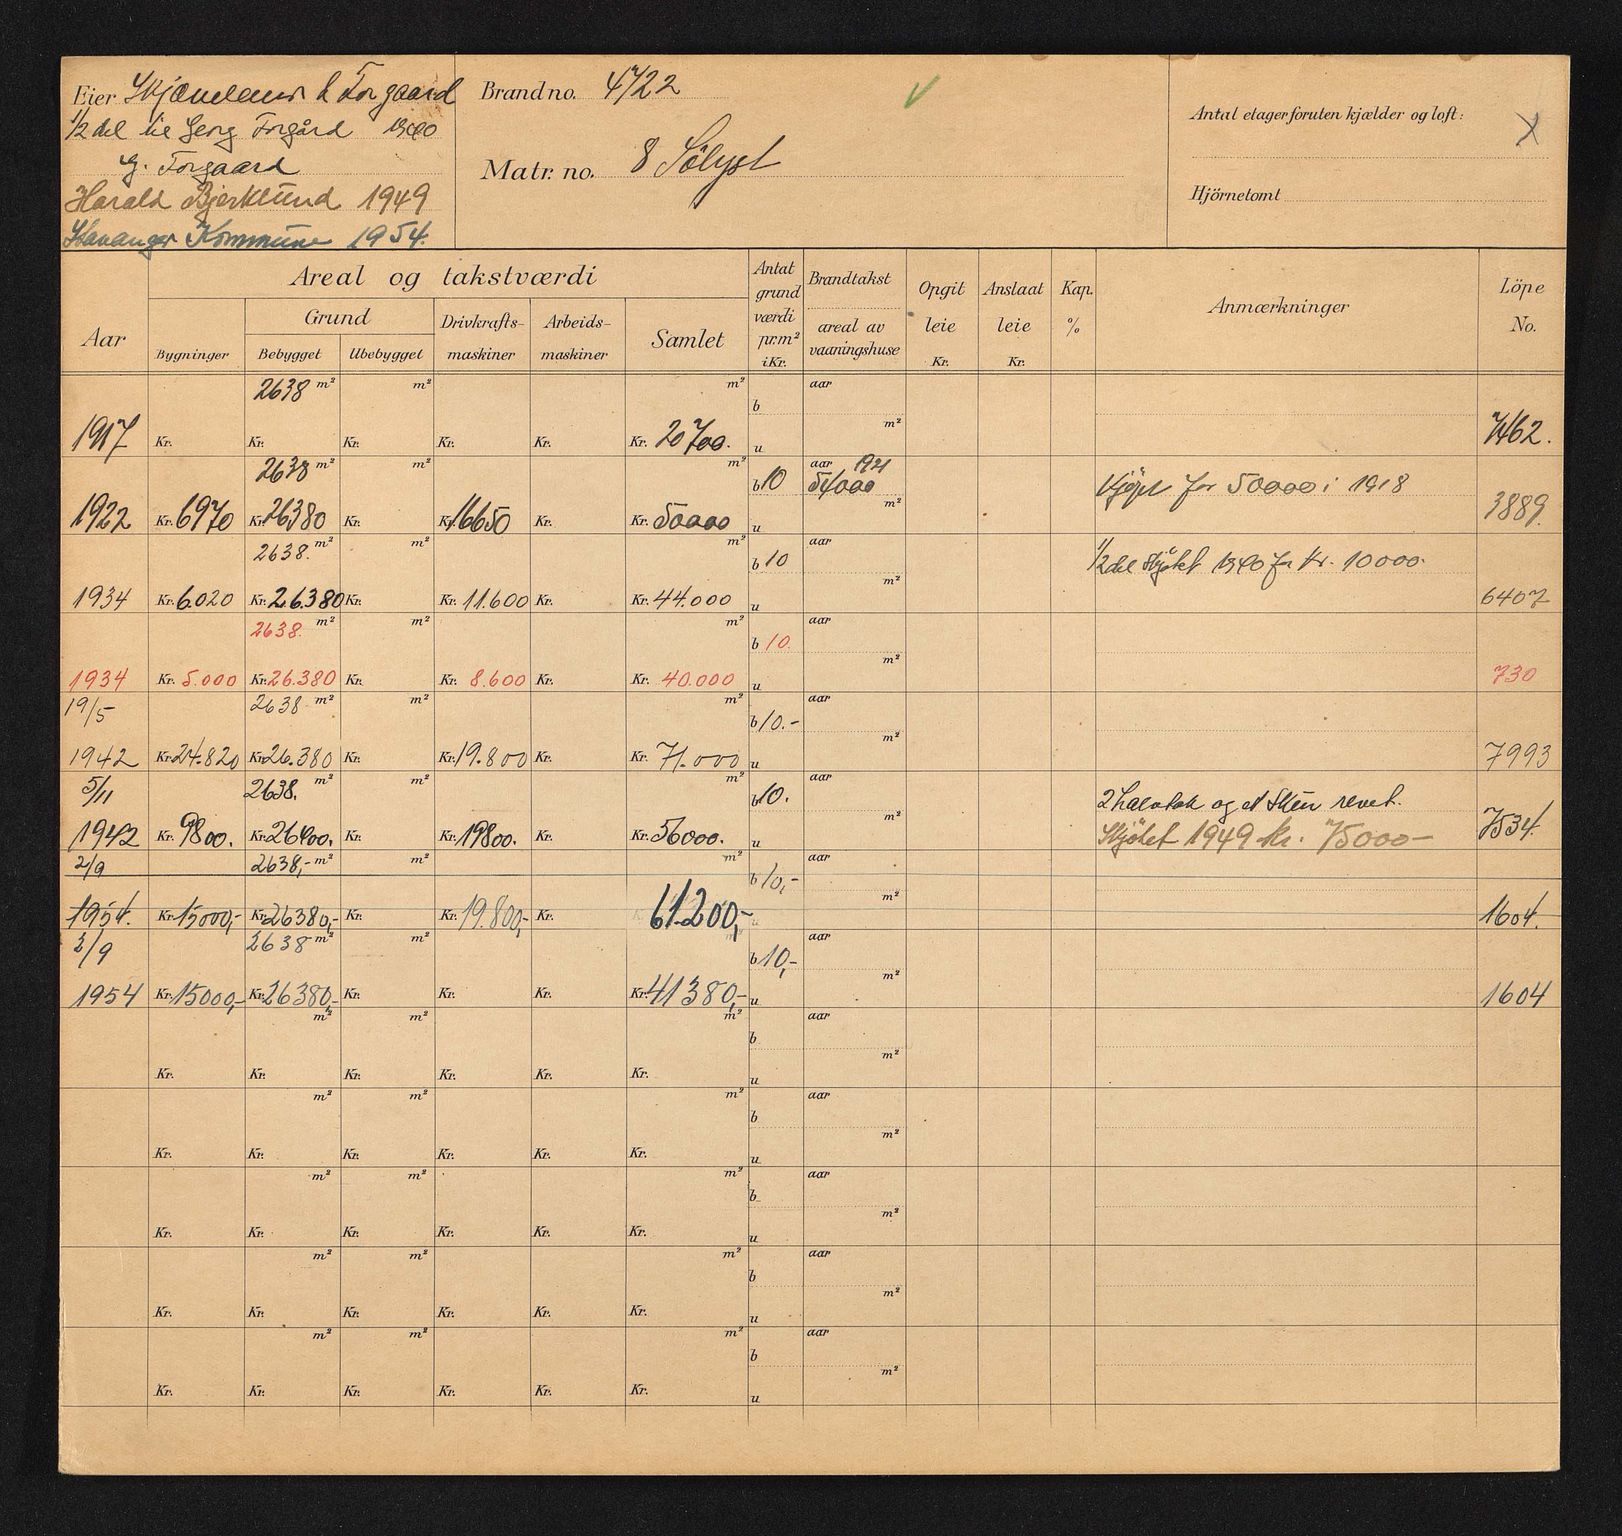 Eier Skjæveland & Torgaard
1/2 del til Georg Torgård 1940
G. Torgaard
Harald Bjerklund 1949
Stavanger Kommune 1954.
Brand no. 4722
Matr. no. 8 Sølyst
Antal etager foruten kjælder og loft:
Hjörnetomt
Aar
Areal og takstværdi
Bygninger
Grund
Bebygget Ubebygget
Drivkrafts-
maskiner
Arbeids-
maskiner
Samlet
Antat
grund
værdi
pr.m²
i Kr.
Brandtakst
areal av
vaaningshuse
Opgit
leie
Kr.
Anslaat
leie
Kr.
Kap.
%
Anmærkninger
Löpe
No.
2638 m² m² m² b aar
1917 Kr. Kr. Kr. Kr. Kr. Kr. 20700. u m² 7462.
2638 m² m² m² b 10 aar 1921
54000
Kjöpt for 50000 i 1918
1922 Kr. 6970 Kr. 26380 Kr. Kr. 16650 Kr. Kr. 50000 u m² 3889.
2638. m² m² m² b 10 aar
1/2 del skjøtet 1940 for kr. 10000.
1934 Kr. 6.020 Kr. 26.380 Kr. Kr. 11.600 Kr. Kr. 44.000 u m² 6407
2638. m² m² m² b 10. aar
1934 Kr. 5.000 Kr. 26.380 Kr. Kr. 8.600 Kr. Kr. 40.000 u m² 730
19/5 2638 m² m² m² b 10.- aar
1942 Kr. 24.820 Kr. 26.380 Kr. Kr. 19.800 Kr. Kr. 71.000 u m² 7993
5/11 2638. m² m² m² b 10. aar
2 halvtak og et skur revet.
1942 Kr. 9800. Kr. 26400. Kr. Kr. 19800. Kr. Kr. 56000. u m² 7534
Skjøtet 1949 kr. 75000-
2/9 2638,- m² m² m² b 10,- aar
1954. Kr. 15000,- Kr. 26380,- Kr. Kr. 19.800,- Kr. 61.200,- m² 1604.
2/9 2638 m² m² m² b 10,- aar
1954 Kr. 15000,- Kr. 26380,- Kr. Kr. Kr. Kr. 41380,- u m² 1604
m² m² m² b aar
Kr. Kr. Kr. Kr. Kr. Kr. u m²
m² m² m² b aar
Kr. Kr. Kr. Kr. Kr. Kr. u m²
m² m² m² b aar
Kr. Kr. Kr. Kr. Kr. Kr. u m²
m² m² m² b aar
Kr. Kr. Kr. Kr. Kr. Kr. u m²
m² m² m² b aar
Kr. Kr. Kr. Kr. Kr. Kr. u m²